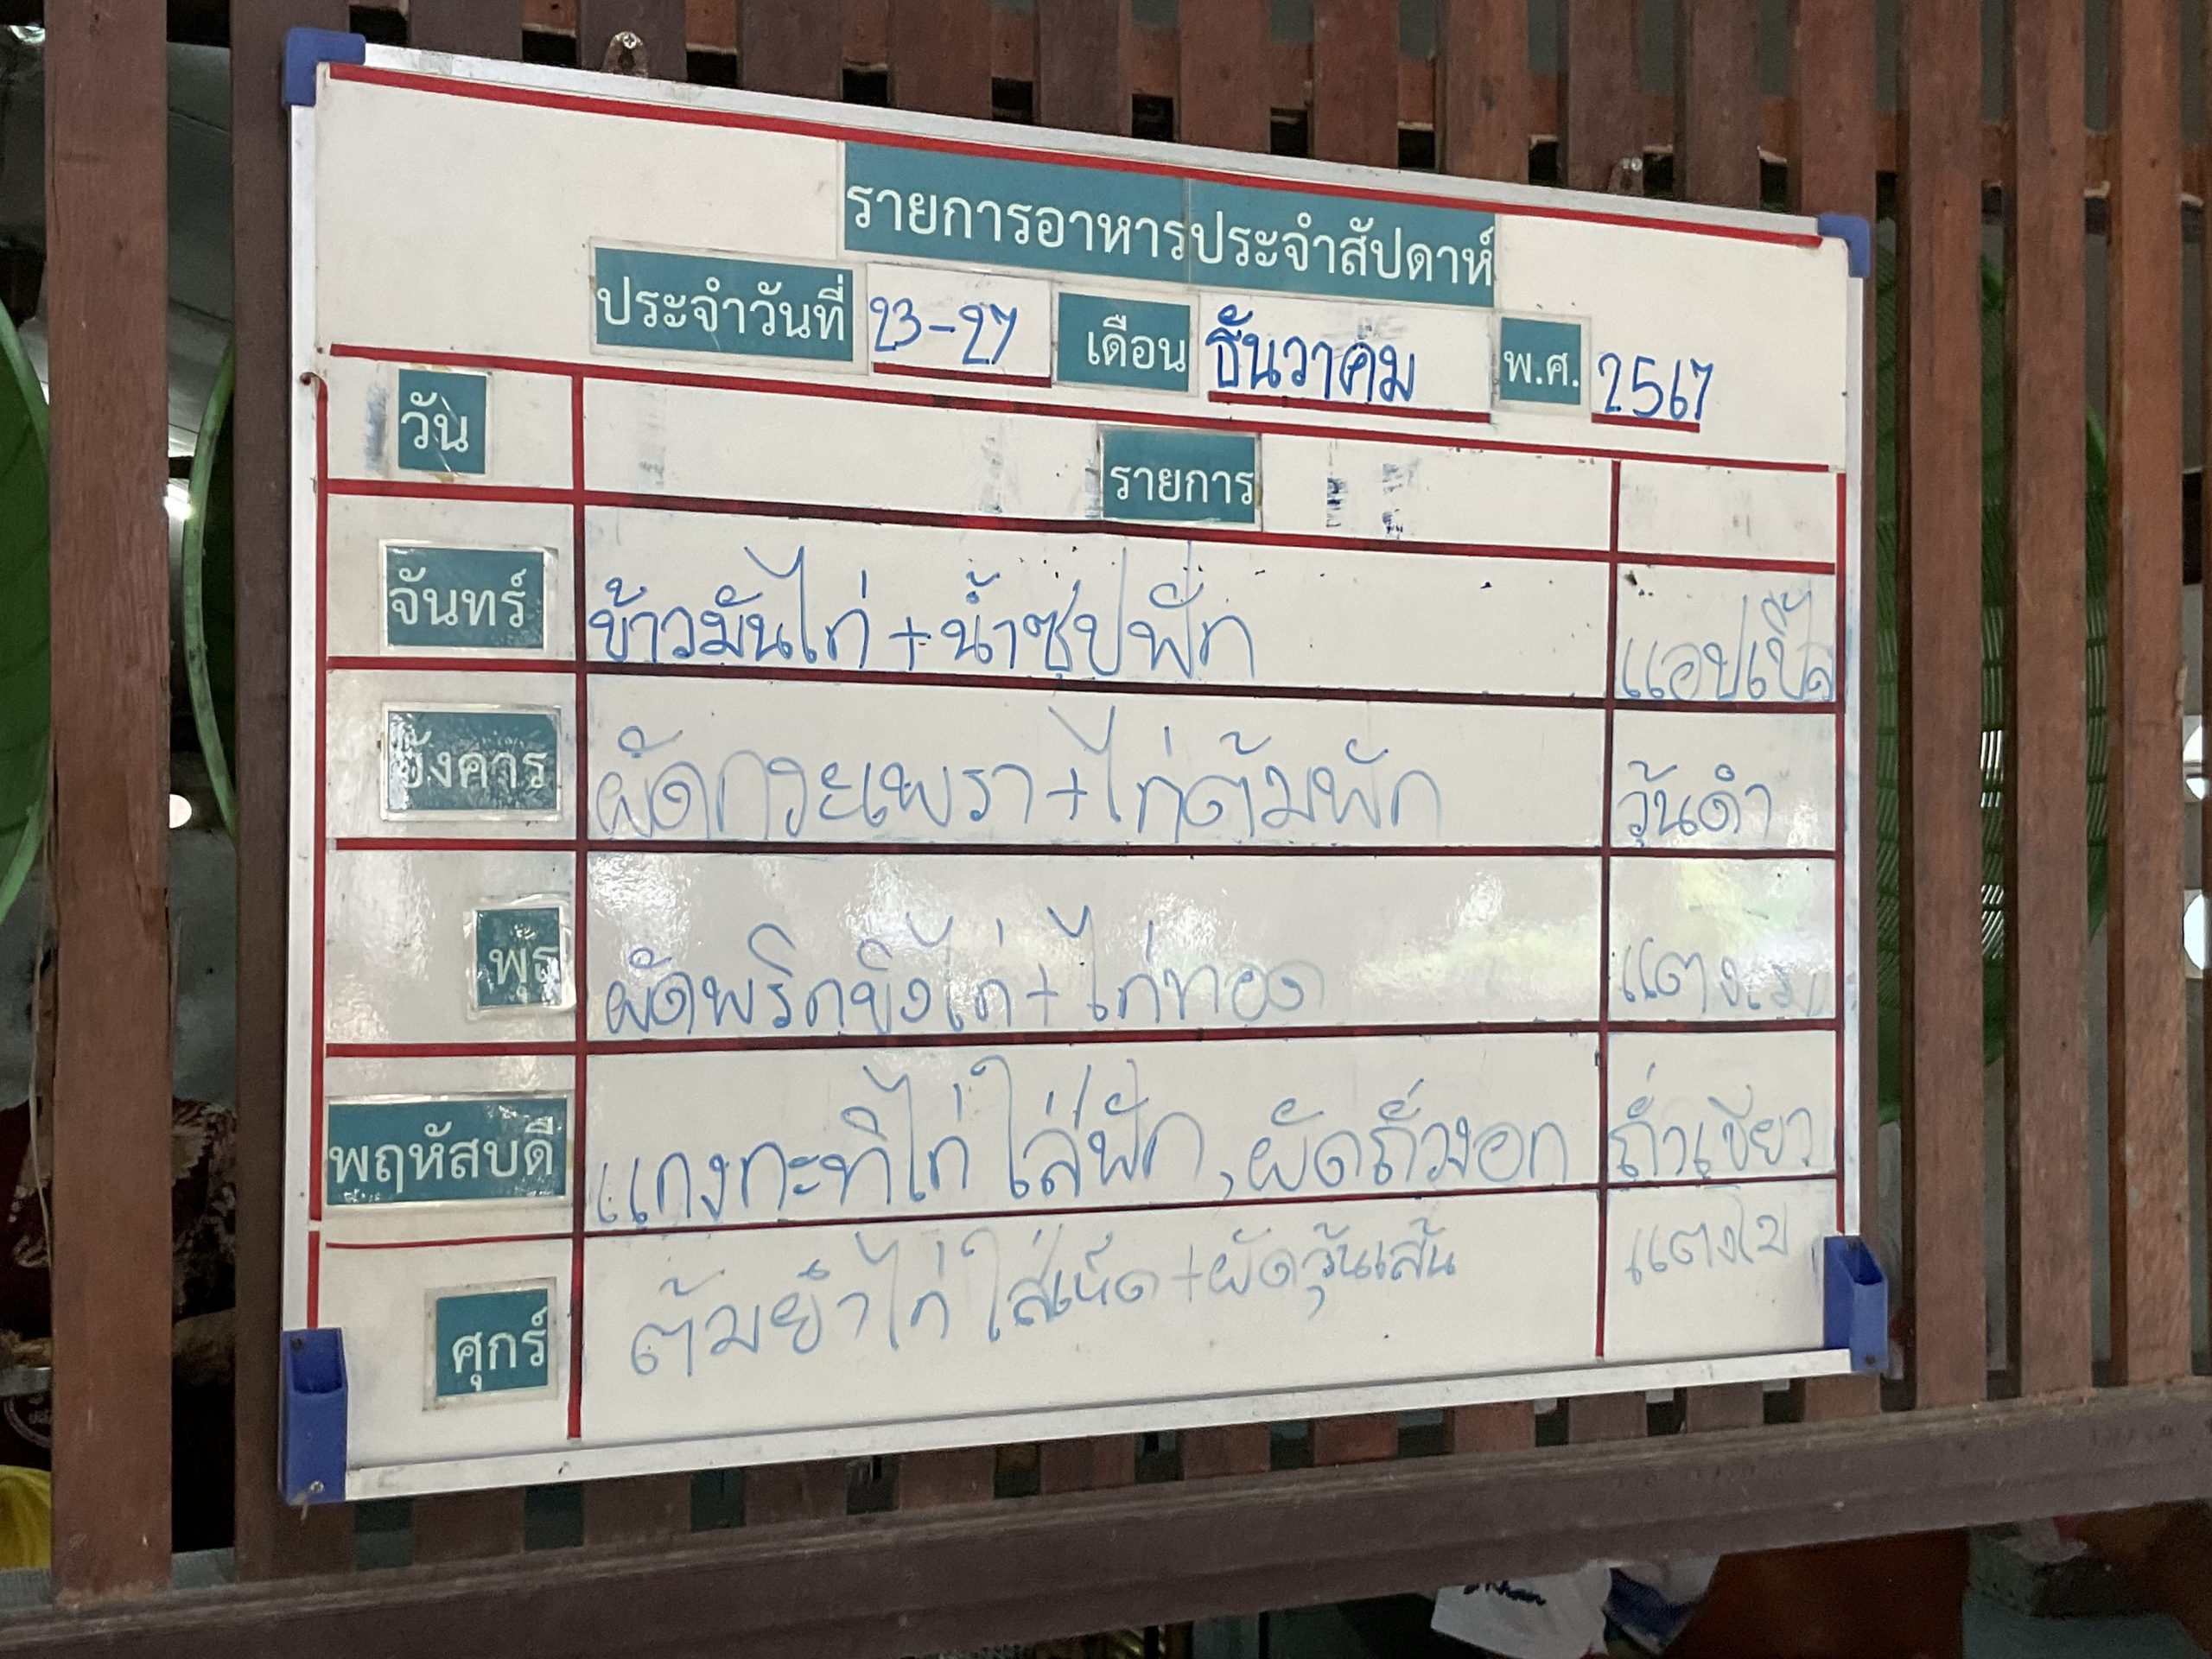 รายการอาหารประจำสัปดาห์
ประจำวันที่ 23-27 เดือน ธันวาคม พ.ศ. 2567
วัน รายการ
จันทร์ ข้าวมันไก่ + น้ำซุปฟัก แอปเปิ้ล
อังคาร ผัดกระเพรา + ไก่ต้มฟัก วุ้นดำ
พุธ ผัดพริกขิงไก่ + ไก่ทอด แตงโม
พฤหัสบดี แกงกะทิไก่ใส่ฟัก, ผัดถั่วงอก ถั่วเขียว
ศุกร์ ต้มยำไก่ใส่เห็ด + ผัดวุ้นเส้น แตงโม